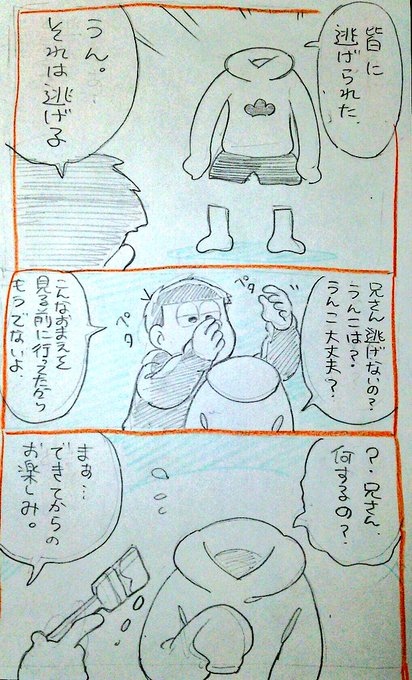 皆に
逃げられた
うん。
それは逃げる
兄さん逃げないの？
うんこは？
うんこ大丈夫？
ペタ
ペタ
こんなおまえを
見る前に行ってたから
もうでないよ
？・兄さん
何するの？
まぁ…
できてからの
お楽しみ。